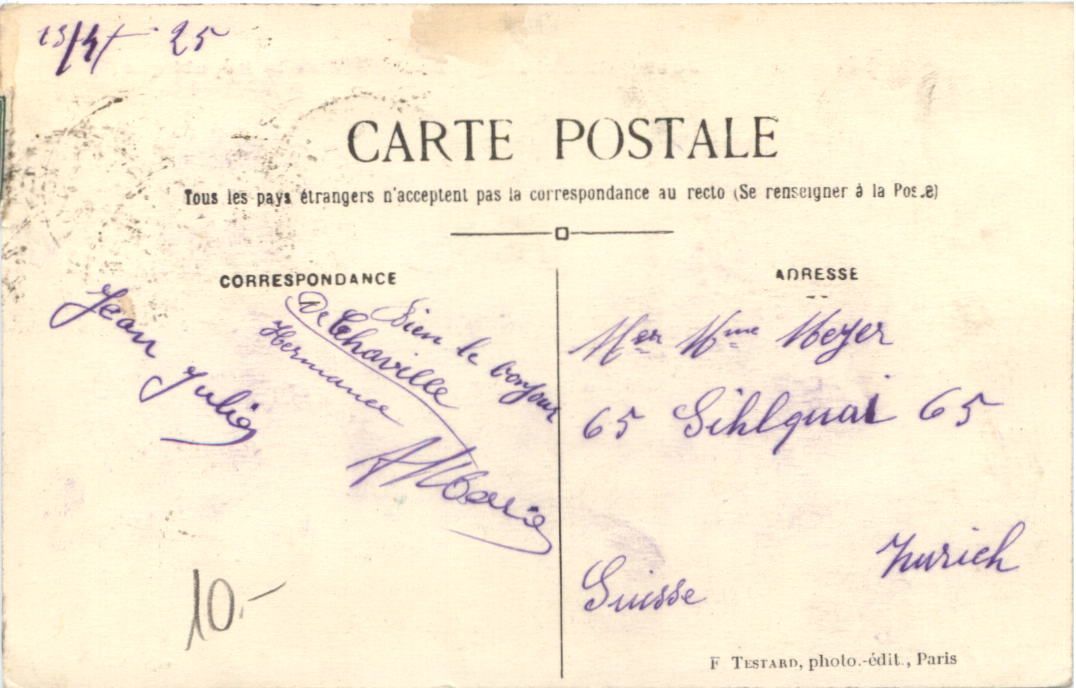 25
CARTE POSTALE
Tous les pays étrangers n'acceptent pas la correspondance au recto (Se renseigner à la Poste)
CORRESPONDANCE
Bien le bonjour
De Chaville
Hermance
Jean
Julie
Marie
10.-
ADRESSE
Mme Meyer
65 Sihlquai 65
Zurich
Suisse
F TESTARD, photo.-édit., Paris